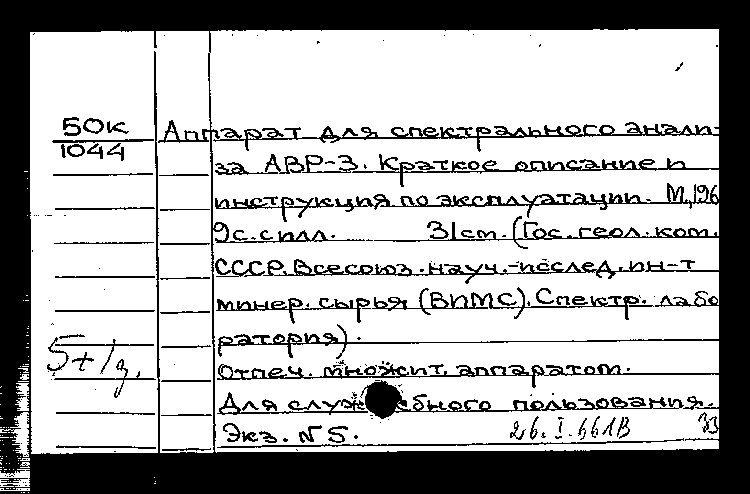 50к
1044
Аппарат для спектрального анали-
за АВР-3. Краткое описание и
инструкция по эксплуатации. М., 196
9с. с илл. 31см. (Гос. геол. ком.
СССР. Всесоюз. науч.-исслед. ин-т
минер. сырья (ВИМС). Спектр. лабо
ратория).
Отпеч. множит. аппаратом.
Для служебного пользования.
Экз. №5. 26.I.66
5+1